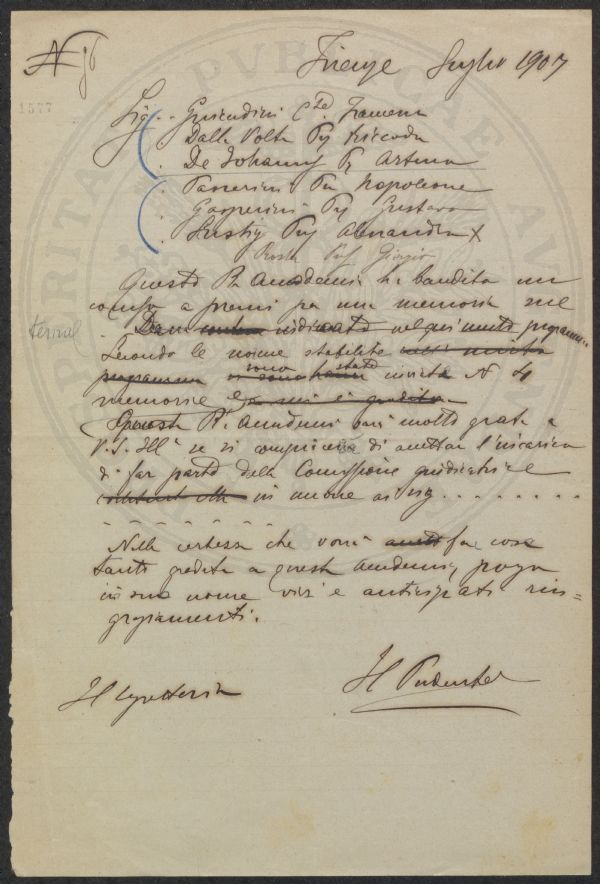 N 96
Firenze Luglio 1907
1577
Sig. Guicciardini Cte Francesco
Dalla Volta Prof Riccardo
De Johannis Pr Arturo
Passerini Pr Napoleone
Gasperini Prof Gustavo
Lustig Prof Alessandro X
Roster Prof Giorgio
Questa R. Accademia ha bandito un
concorso a premi per una memoria sul
tema
programma
Secondo le norme stabilite
programma sono state inviate N 4
memorie e
Questa R. Accademia sarà molto grata a
V. S. Ill se si compiacerà di accettare l'incarico
di far parte della Commissione giudicatrice
in unione ai sig. . . . . . . .
. . . . . . . .
Nella certezza che vorrà fare cosa
tanto gradita a questa Accademia, porgo
in suo nome vivi e anticipati rin=
graziamenti.
Il Segretario
Il Presidente